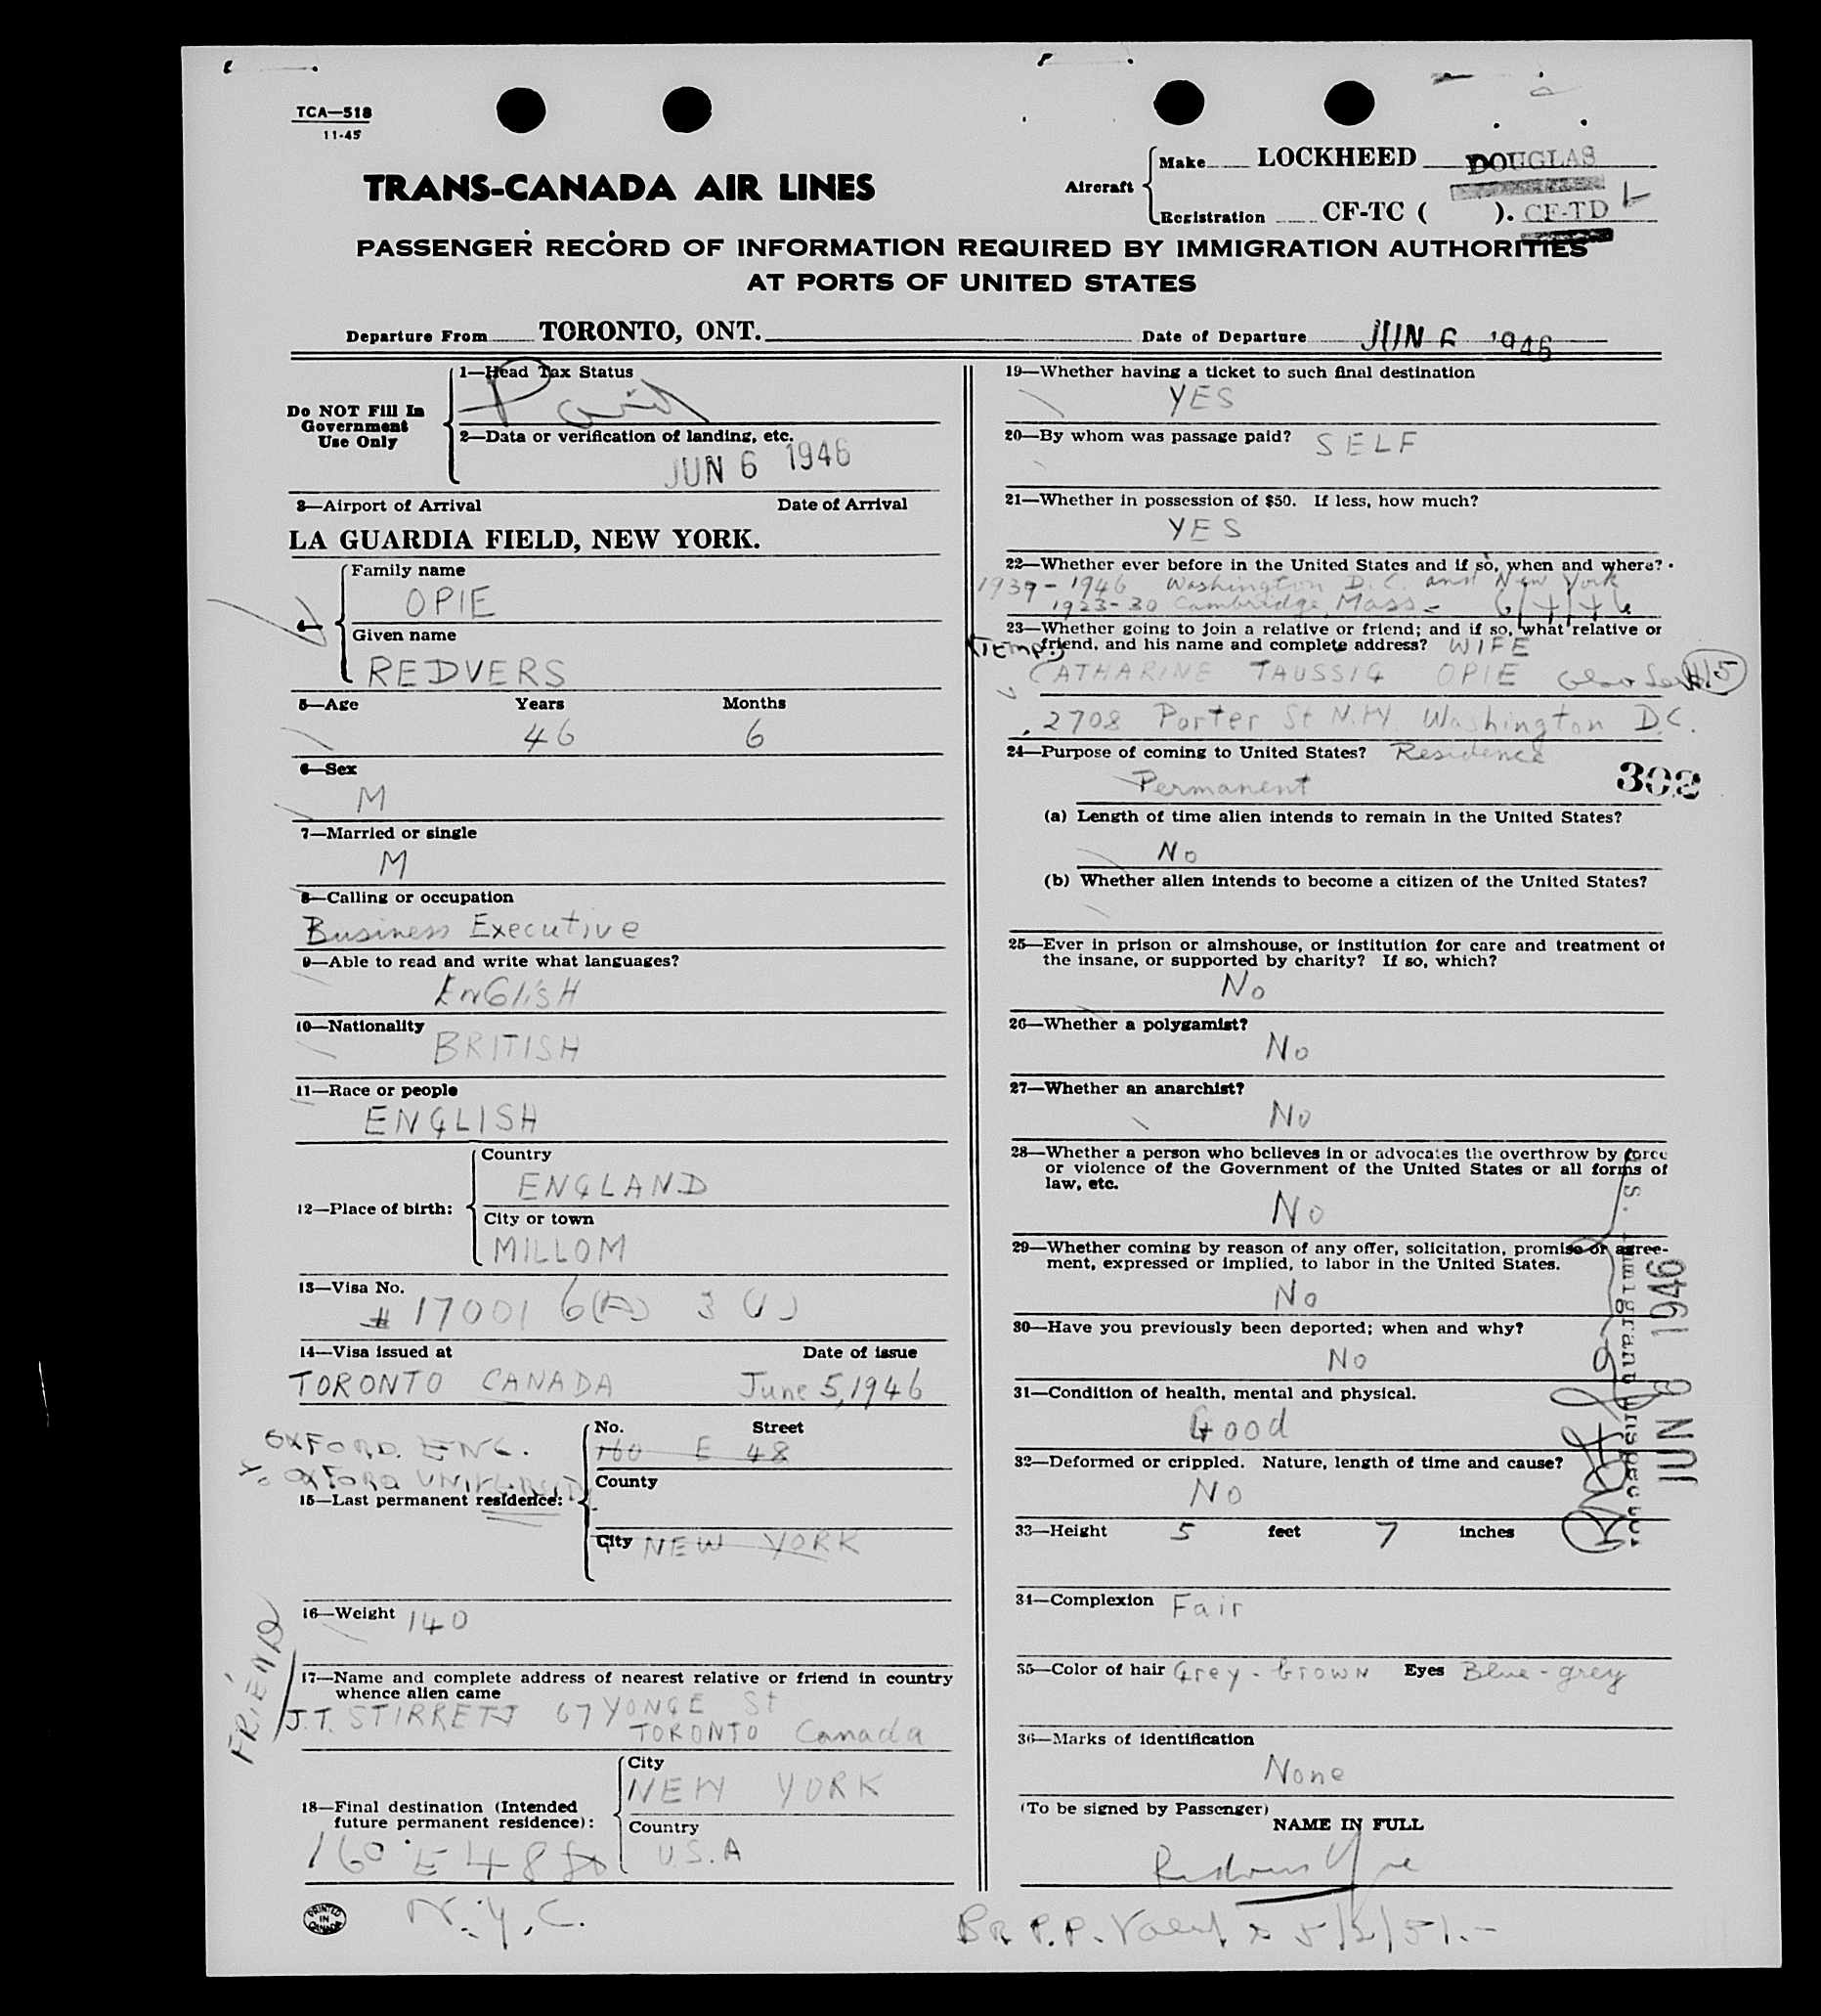 TCA—518
11-45
TRANS-CANADA AIR LINES
Aircraft
Make LOCKHEED DOUGLAS
Registration CF-TC ( ). CF-TD L
PASSENGER RECORD OF INFORMATION REQUIRED BY IMMIGRATION AUTHORITIES
AT PORTS OF UNITED STATES
Departure From TORONTO, ONT. Date of Departure JUN 6 1946
Do NOT Fill In
Government
Use Only
1—Head Tax Status
Paid
2—Data or verification of landing, etc.
JUN 6 1946
3—Airport of Arrival Date of Arrival
LA GUARDIA FIELD, NEW YORK.
4—
Family name
OPIE
Given name
REDVERS
5—Age Years Months
46 6
6—Sex
M
7—Married or single
M
8—Calling or occupation
Business Executive
9—Able to read and write what languages?
ENGLISH
10—Nationality
BRITISH
11—Race or people
ENGLISH
12—Place of birth:
Country
ENGLAND
City or town
MILLOM
13—Visa No.
# 17001 6(A) 3
14—Visa issued at Date of issue
TORONTO CANADA June 5, 1946
OXFORD. ENG.
% OXFORD UNIVERSITY
15—Last permanent residence:
No. Street
160 E 48
County
City NEW YORK
16—Weight 140
FRIEND
17—Name and complete address of nearest relative or friend in country
whence alien came
J.T. STIRRETT 67 YONGE St
TORONTO Canada
18—Final destination (Intended
future permanent residence):
City
NEW YORK
Country
U.S.A
160 E 48 St
N.Y.C.
PRINTED
IN
CANADA
19—Whether having a ticket to such final destination
YES
20—By whom was passage paid? SELF
21—Whether in possession of $50. If less, how much?
YES
22—Whether ever before in the United States and if so, when and where?
1939-1946 Washington D.C. and New York
1923-30 Cambridge, Mass-
23—Whether going to join a relative or friend; and if so, what relative or
friend, and his name and complete address? WIFE
(Temp.)
CATHARINE TAUSSIG OPIE
2708 Porter St N.W. Washington D.C.
24—Purpose of coming to United States? Residence
Permanent
302
(a) Length of time alien intends to remain in the United States?
No
(b) Whether alien intends to become a citizen of the United States?
25—Ever in prison or almshouse, or institution for care and treatment of
the insane, or supported by charity? If so, which?
No
26—Whether a polygamist?
No
27—Whether an anarchist?
No
28—Whether a person who believes in or advocates the overthrow by force
or violence of the Government of the United States or all forms of
law, etc.
No
29—Whether coming by reason of any offer, solicitation, promise or agree-
ment, expressed or implied, to labor in the United States.
No
30—Have you previously been deported; when and why?
No
31—Condition of health, mental and physical.
Good
32—Deformed or crippled. Nature, length of time and cause?
No
33—Height 5 feet 7 inches
U.S. Immigrant Inspector.
JUN 6 1946
34—Complexion Fair
35—Color of hair Grey-brown Eyes Blue-grey
36—Marks of identification
None
(To be signed by Passenger)
NAME IN FULL
Redvers Opie
BR P.P. Valid